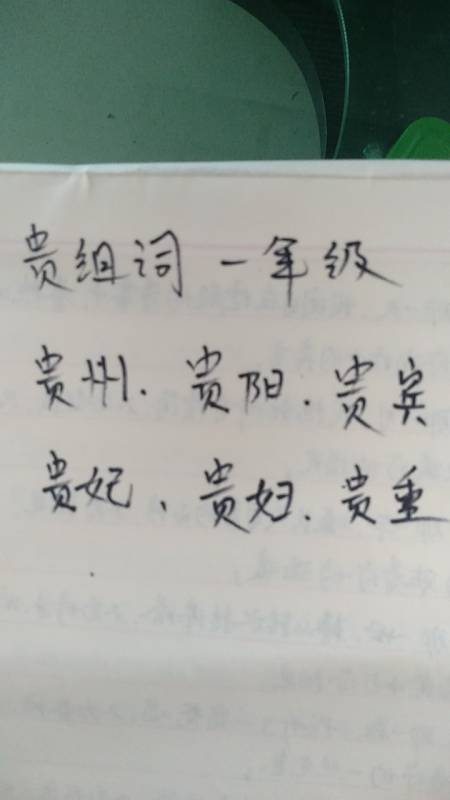 贵组词 一年级
贵州.贵阳.贵宾
贵妃、贵妇.贵重